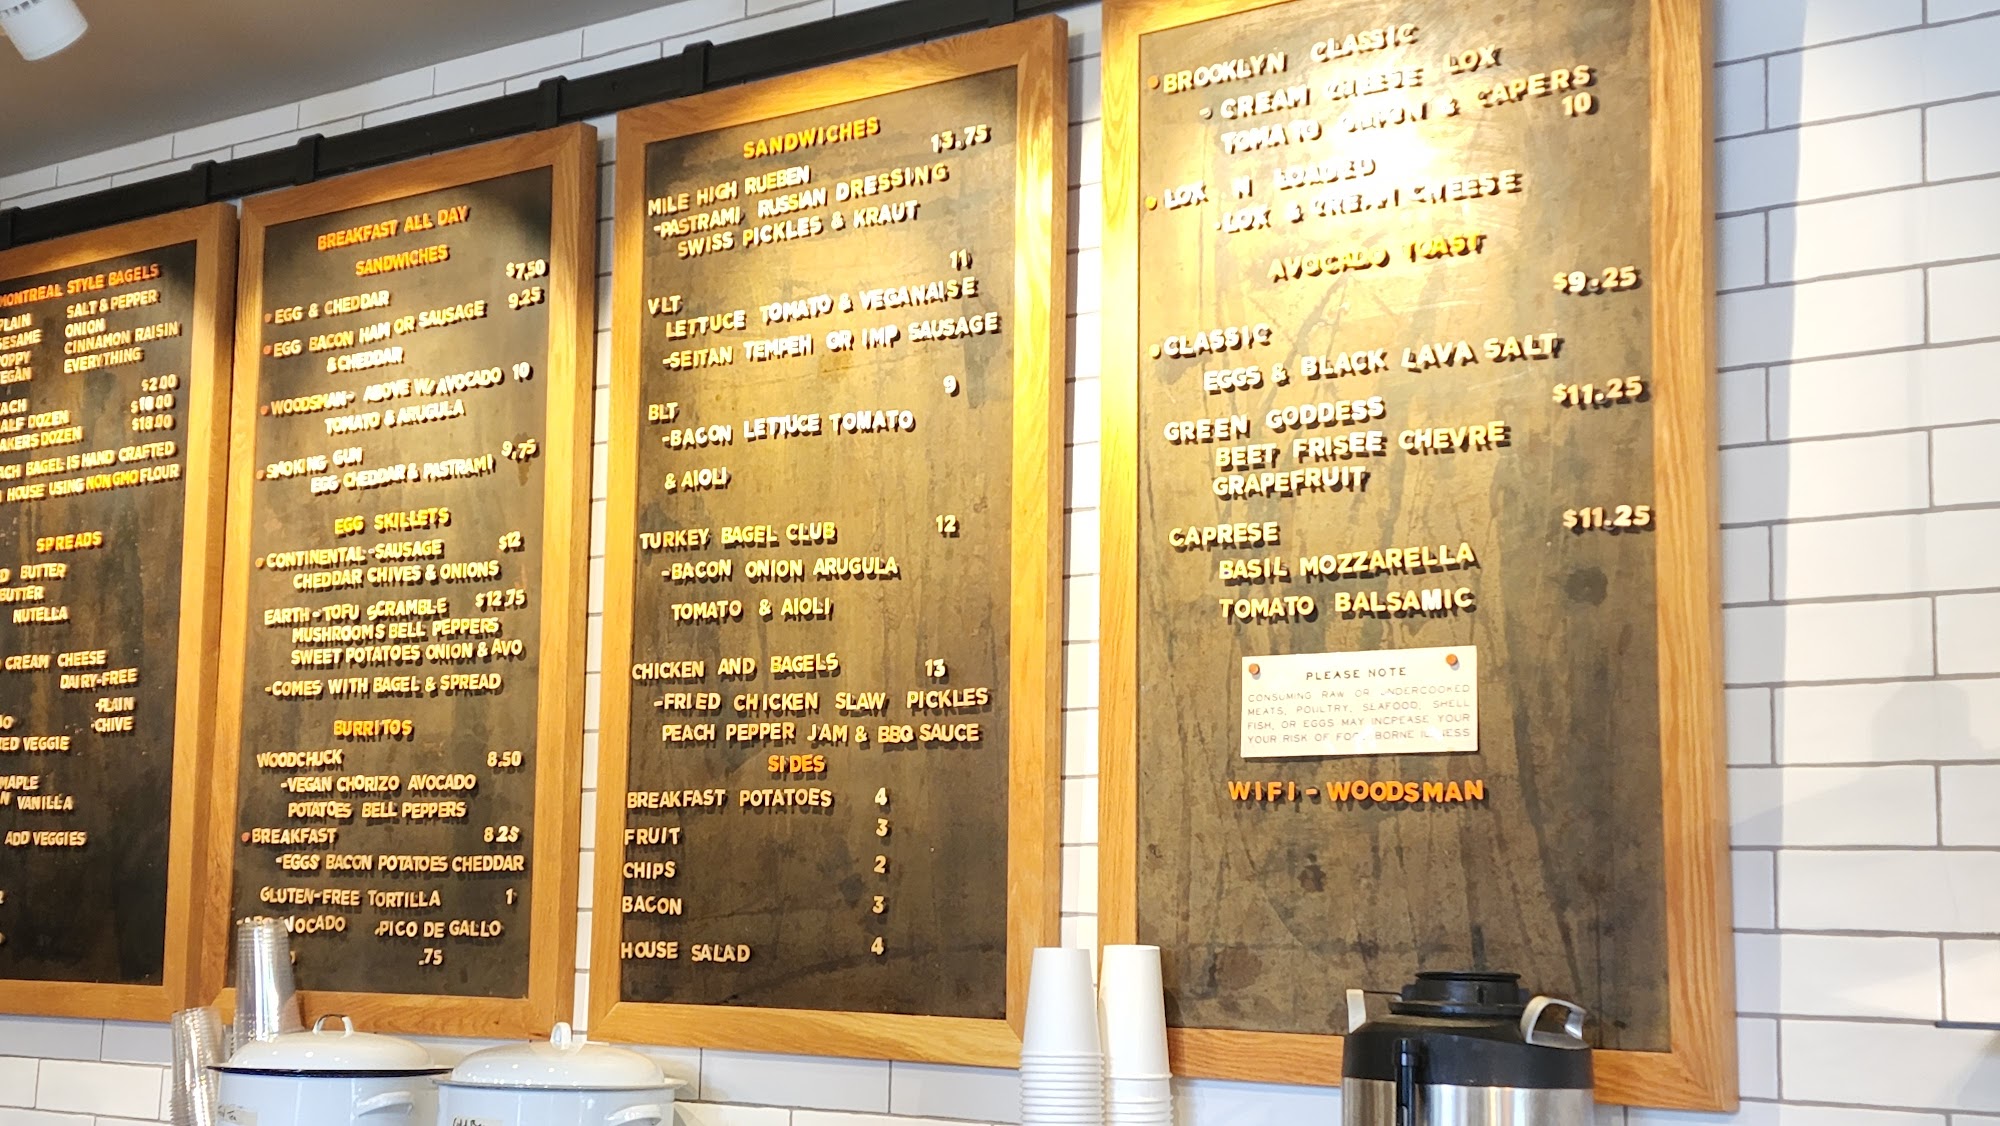 MONTREAL STYLE BAGELS
PLAIN SALT & PEPPER
SESAME ONION
POPPY CINNAMON RAISIN
VEGAN EVERYTHING
EACH $2.00
HALF DOZEN $10.00
BAKERS DOZEN $18.00
EACH BAGEL IS HAND CRAFTED
HOUSE USING NON GMO FLOUR
SPREADS
BUTTER
BUTTER
NUTELLA
CREAM CHEESE
DAIRY-FREE
-PLAIN
-CHIVE
VEGGIE
MAPLE
VANILLA
ADD VEGGIES
BREAKFAST ALL DAY
SANDWICHES
EGG & CHEDDAR $7.50
EGG BACON HAM OR SAUSAGE 9.25
& CHEDDAR
WOODSMAN- ABOVE W/ AVOCADO 10
TOMATO & ARUGULA
SMOKING GUN 9.75
EGG CHEDDAR & PASTRAMI
EGG SKILLETS
CONTINENTAL-SAUSAGE $12
CHEDDAR CHIVES & ONIONS
EARTH-TOFU SCRAMBLE $12.75
MUSHROOMS BELL PEPPERS
SWEET POTATOES ONION & AVO
-COMES WITH BAGEL & SPREAD
BURRITOS
WOODCHUCK 8.50
-VEGAN CHORIZO AVOCADO
POTATOES BELL PEPPERS
BREAKFAST 8.25
-EGGS BACON POTATOES CHEDDAR
GLUTEN-FREE TORTILLA 1
PICO DE GALLO
.75
SANDWICHES
13.75
MILE HIGH RUEBEN
-PASTRAMI RUSSIAN DRESSING
SWISS PICKLES & KRAUT
11
VLT
LETTUCE TOMATO & VEGANAISE
-SEITAN TEMPEH OR IMP SAUSAGE
9
BLT
-BACON LETTUCE TOMATO
& AIOLI
TURKEY BAGEL CLUB 12
-BACON ONION ARUGULA
TOMATO & AIOLI
CHICKEN AND BAGELS 13
-FRIED CHICKEN SLAW PICKLES
PEACH PEPPER JAM & BBQ SAUCE
SIDES
BREAKFAST POTATOES 4
FRUIT 3
CHIPS 2
BACON 3
HOUSE SALAD 4
BROOKLYN CLASSIC
- CREAM CHEESE LOX
TOMATO ONION & CAPERS
10
LOX N LOADED
-LOX & CREAM CHEESE
AVOCADO TOAST
$9.25
CLASSIC
EGGS & BLACK LAVA SALT
$11.25
GREEN GODDESS
BEET FRISEE CHEVRE
GRAPEFRUIT
$11.25
CAPRESE
BASIL MOZZARELLA
TOMATO BALSAMIC
PLEASE NOTE
CONSUMING RAW OR UNDERCOOKED
MEATS, POULTRY, SEAFOOD, SHELL
FISH, OR EGGS MAY INCREASE YOUR
YOUR RISK OF FOOD BORNE ILLNESS
WIFI - WOODSMAN